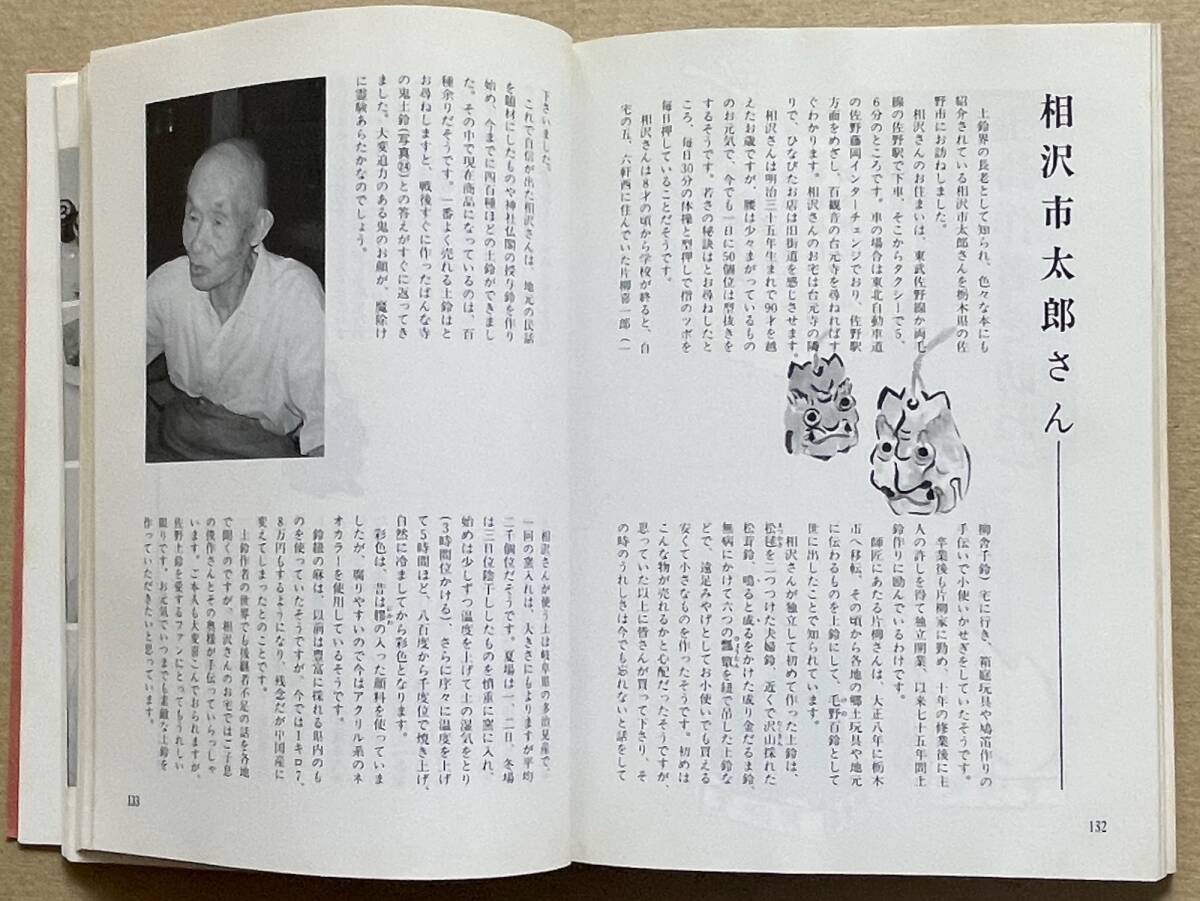 相沢市太郎さん
土鈴界の長老として知られ、色々な本にも
紹介されている相沢市太郎さんを栃木県の佐
野市にお訪ねしました。
相沢さんのお住まいは、東武佐野線か両毛
線の佐野駅で下車、そこからタクシーで5、
6分のところです。車の場合は東北自動車道
の佐野藤岡インターチェンジでおり、佐野駅
方面をめざし、百観音の台元寺を尋ねればす
ぐわかります。相沢さんのお宅は台元寺の隣
りで、ひなびたお店は旧街道を感じさせます。
相沢さんは明治三十五年生まれで90才を越
えたお歳ですが、腰は少々まがっているもの
のお元気で、今でも一日に50個位は型抜きを
するそうです。若さの秘訣はとお尋ねしたと
ころ、毎日30分の体操と型押しで指のツボを
毎日押していることだそうです。
相沢さんは8才の頃から学校が終ると、自
宅の五、六軒西に住んでいた片柳喜一郎(一
柳舎千鈴)宅に行き、箱庭玩具や鳩笛作りの
手伝いで小使いかせぎをしていたそうです。
卒業後も片柳家に勤め、十年の修業後に主
人の許しを得て独立開業、以来七十五年間土
鈴作りに励んでいるわけです。
師匠にあたる片柳さんは、大正八年に栃木
市へ移転、その頃から各地の郷土玩具や地元
に伝わるものを土鈴にして、毛野百鈴として
世に出したことで知られています。
相沢さんが独立して初めて作った土鈴は、
松毬を二つつけた夫婦鈴、近くで沢山採れた
松茸鈴、鳴ると成るをかけた成り金だるま鈴、
無病にかけて六つの瓢箪を紐で吊した土鈴な
どで、遠足みやげとしてお小使いでも買える
安くて小さなものを作ったそうです。初めは
こんな物が売れるかと心配だったそうですが、
思っていた以上に皆さんが買って下さり、そ
の時のうれしさは今でも忘れないと話をして
132
下さいました。
これで自信が出た相沢さんは、地元の民話
を題材にしたものや神社仏閣の授与鈴を作り
始め、今までに四百種ほどの土鈴ができまし
た。その中で現在商品になっているのは、百
種余りだそうです。一番よく売れる土鈴はと
お尋ねしますと、戦後すぐに作ったばんな寺
の鬼土鈴(写真㉔)との答えがすぐに返ってき
ました。大変迫力のある鬼のお顔が、魔除け
に霊験あらたかなのでしょう。
相沢さんが使う土は岐阜県の多治見産で、
一回の窯入れは、大きさにもよりますが平均
二千個位だそうです。夏場は一、二日、冬場
は三日位陰干ししたものを慎重に窯に入れ、
始めは少しずつ温度を上げて土の湿気をとり
(3時間位かける)、さらに序々に温度を上げ
て5時間ほど、八百度から千度位で焼き上げ、
自然に冷ましてから彩色となります。
彩色は、昔は膠の入った顔料を使っていま
したが、腐りやすいので今はアクリル系のネ
オカラーを使用しているそうです。
鈴紐の麻は、以前は豊富に採れる県内のも
のを使っていたそうですが、今では1キロ7、
8万円もするようになり、残念だが中国産に
変えてしまったとのことです。
土鈴作者の世界でも後継者不足の話を各地
で聞くのですが、相沢さんのお宅ではご子息
の俊作さんとその奥様が手伝っていらっしゃ
います。ご本人も大変喜こんでおられますが、
佐野土鈴を愛するファンにとってもうれしい
限りです。お元気でいつまでも素敵な土鈴を
作っていただきたいと思っています。
133